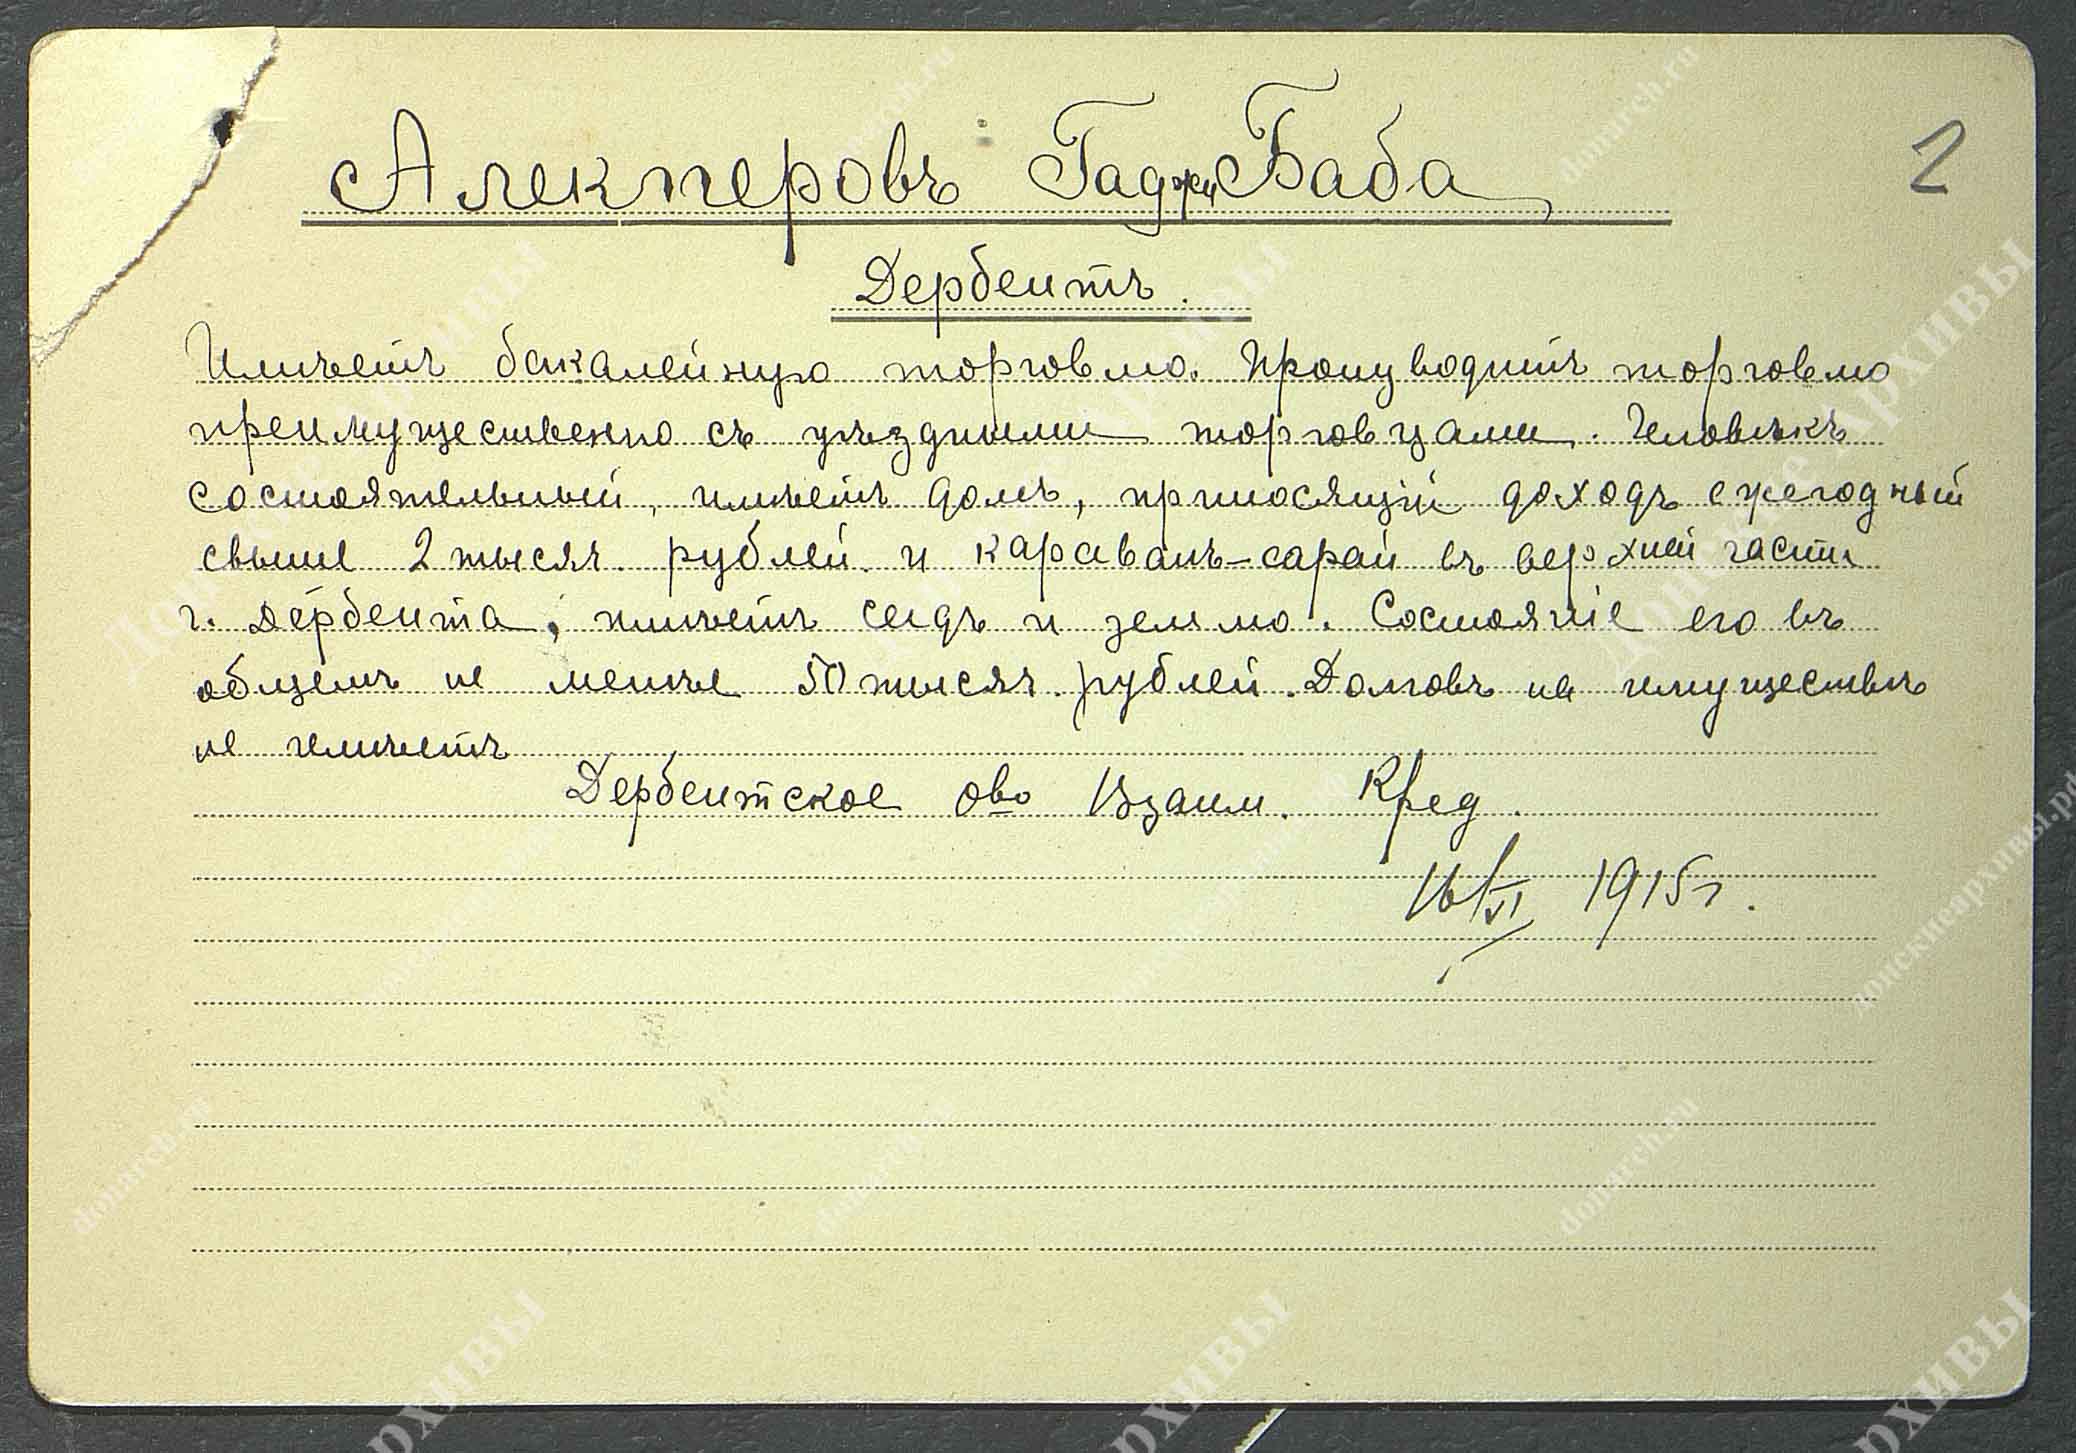 Алекперовъ Гаджи Баба
2
Дербентъ.
Имѣетъ бакалейную торговлю. Производитъ торговлю
преимущественно съ уѣздными торговцами. Человѣкъ
состоятельный, имѣетъ домъ, приносящій доходъ ежегодный
свыше 2 тысяч. рублей и караванъ-сарай въ верхней части
г. Дербента, имѣетъ садъ и землю. Состояніе его въ
общемъ не менѣе 50 тысяч. рублей. Долговъ на имуществѣ
не имѣетъ
Дербентское о-во Взаим. Кред.
16/VI 1915 г.